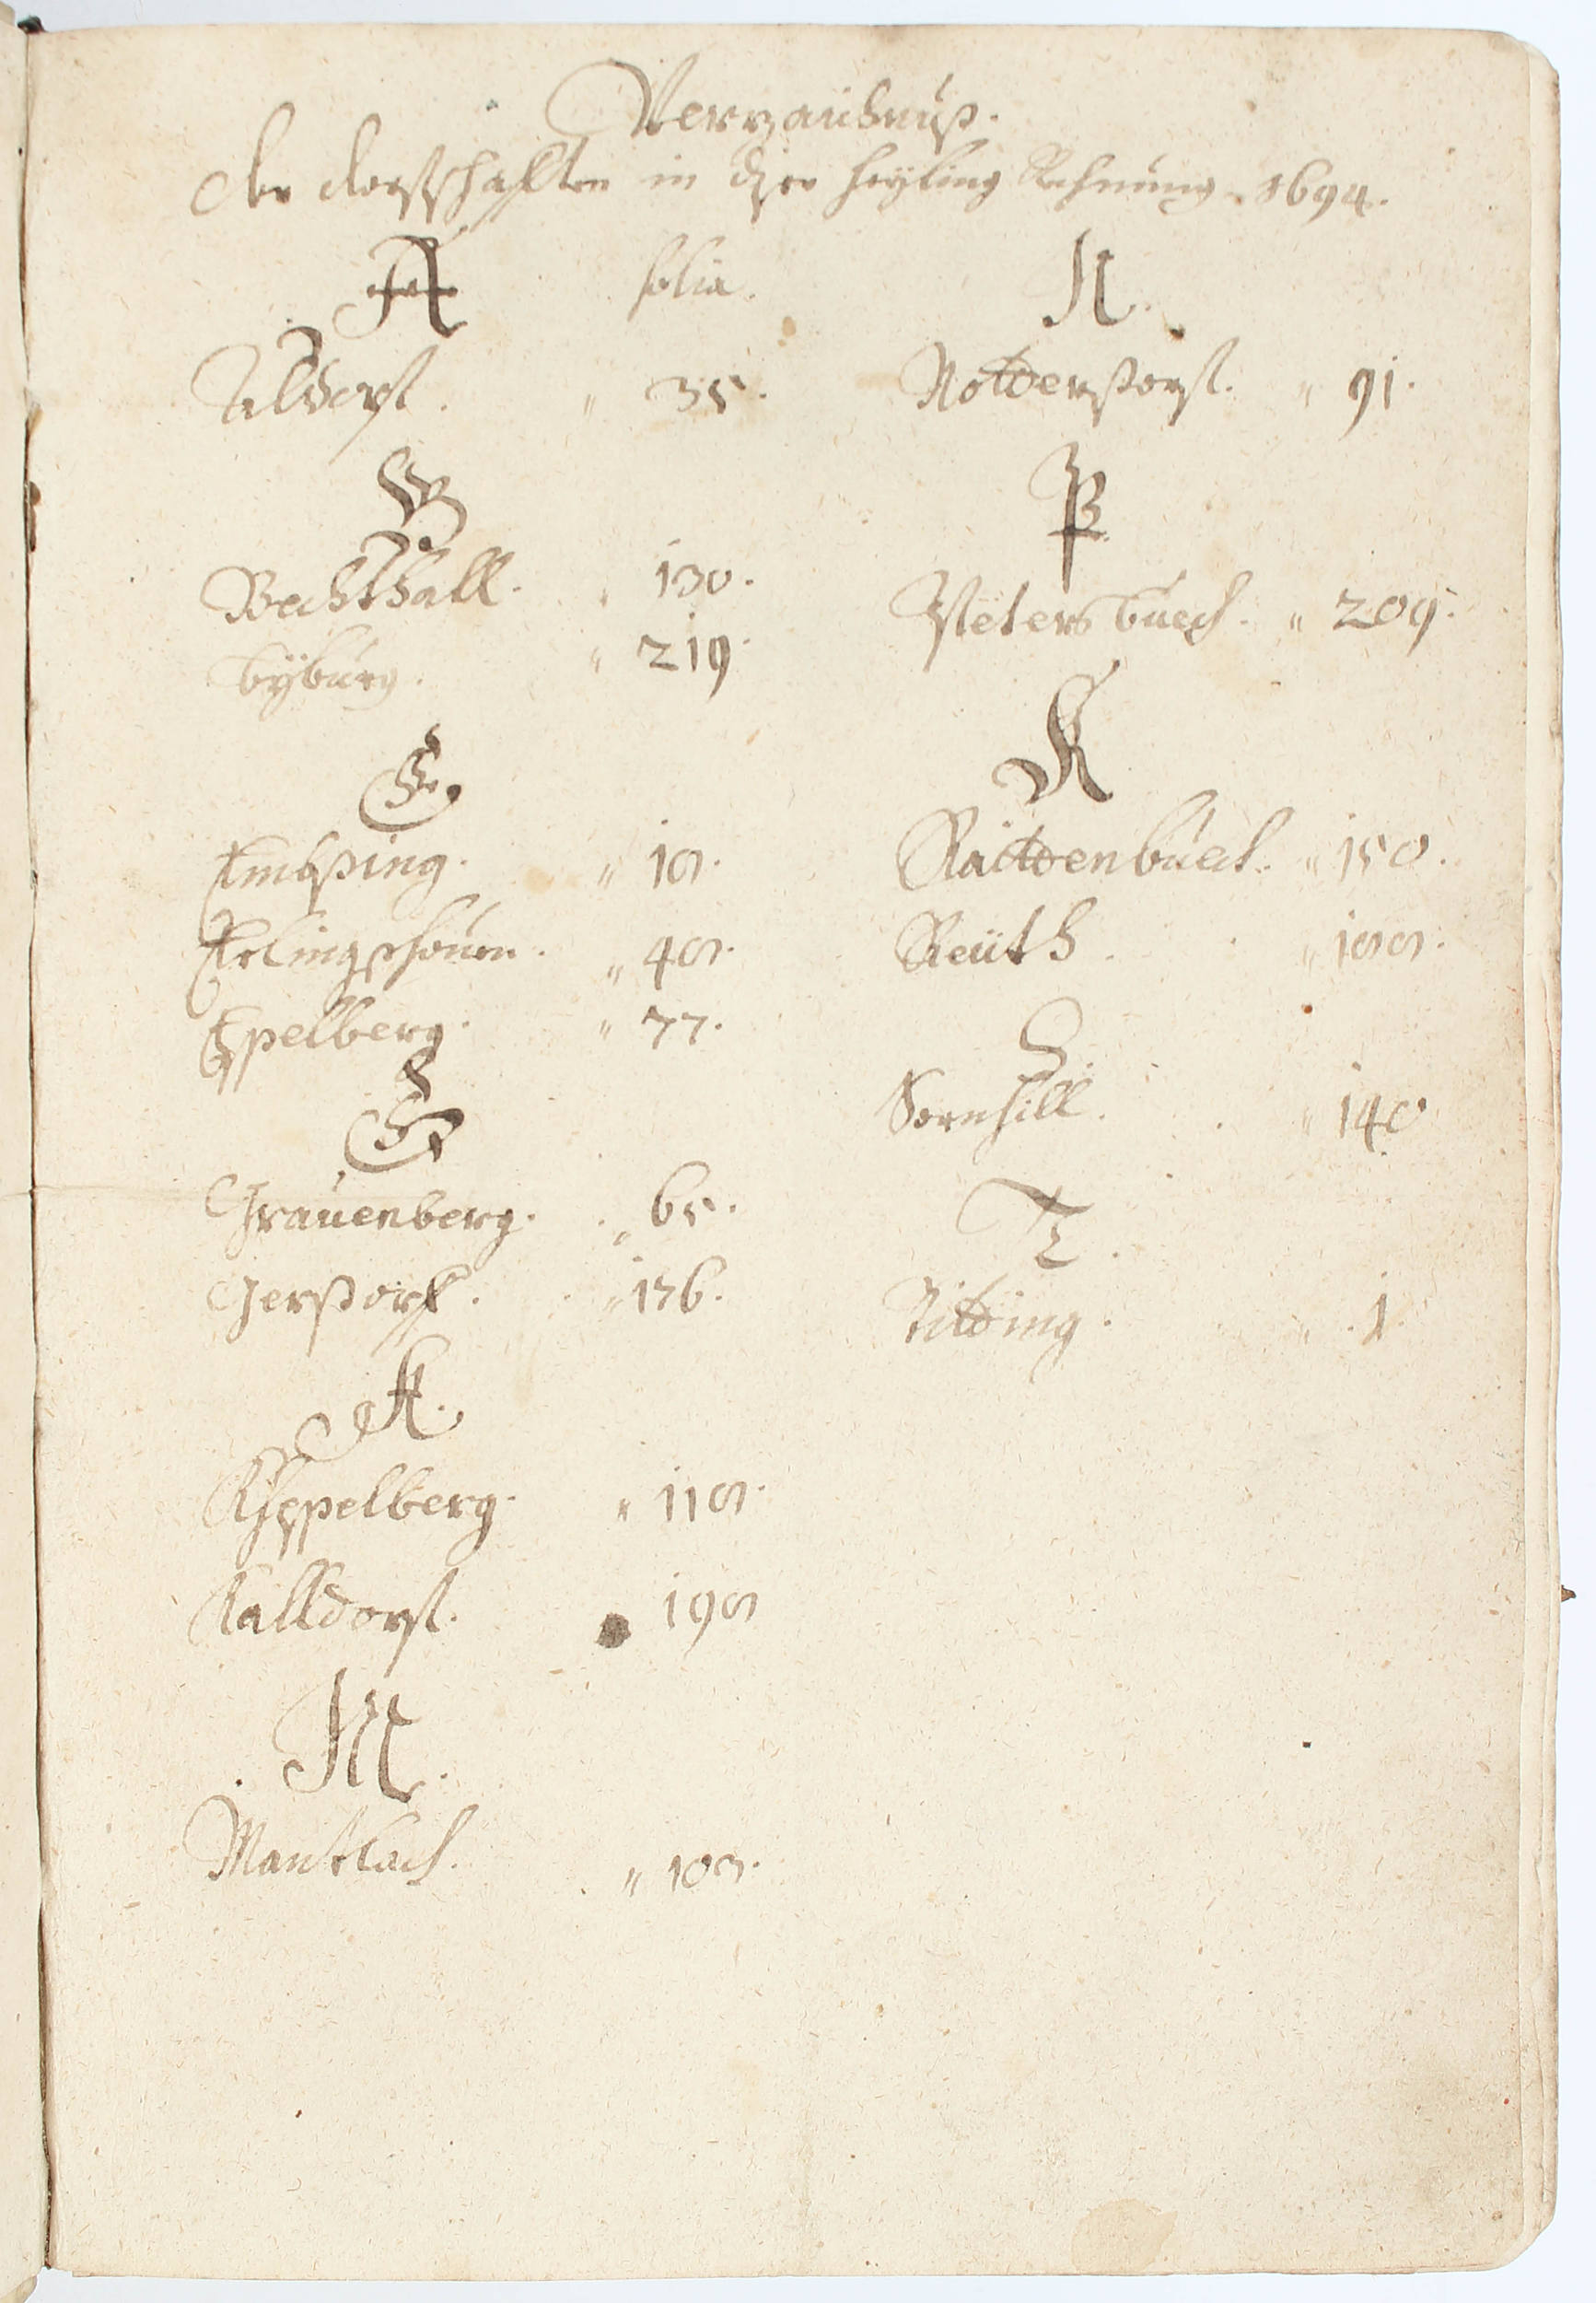 Verzaichnuß.
der dorfschafften in diser heyling Rechnung 1694.
A
folia.
Altdorf. " 35.
B.
Bechthall. " 130.
byburg. " 219.
E.
Embsing. " 18.
Erlingshouen. " 48.
Espelberg. " 77.
G
Grauenberg. " 65.
Gerstorf. " 176.
K.
Köppelberg. " 118.
Kalldorf. 198
M.
Mantlach. " 103.
N.
Notterstorf. " 91.
P.
Petersbuech. " 209.
R
Raittenbuech. " 150.
Reüth. " 188.
S.
Sornhill. " 140
T.
Titting. " 1.